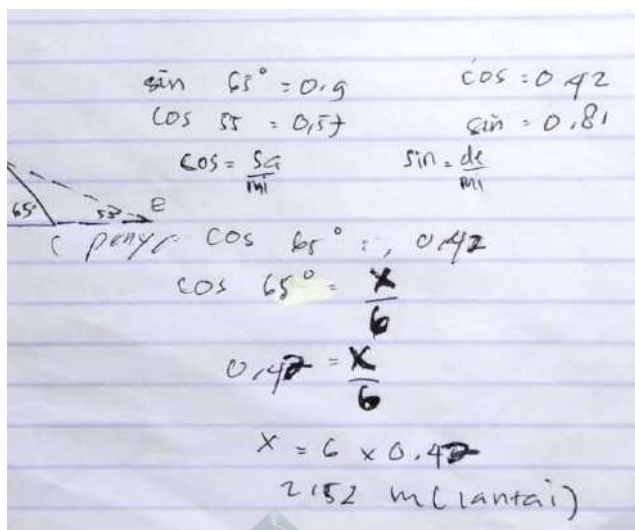 sin 65° = 0,9 cos = 0,42
cos 55 = 0,57 sin = 0,81
cos = sa/mi sin = de/mi
65° 55° E
C penye cos 65° = 0,42
cos 65° = x/6
0,42 = x/6
x = 6 x 0,42
2,52 m (lantai)